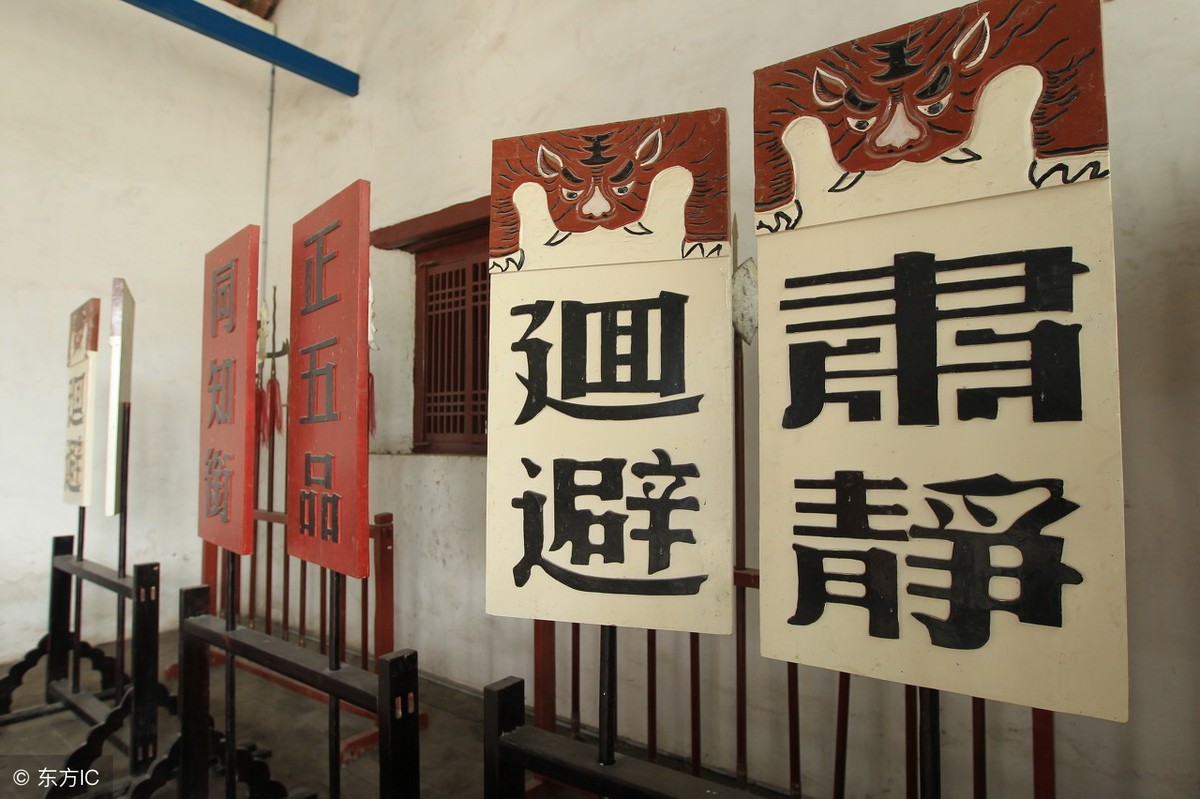 肅靜
迴避
正五品
同知衘
迴避
© 东方IC